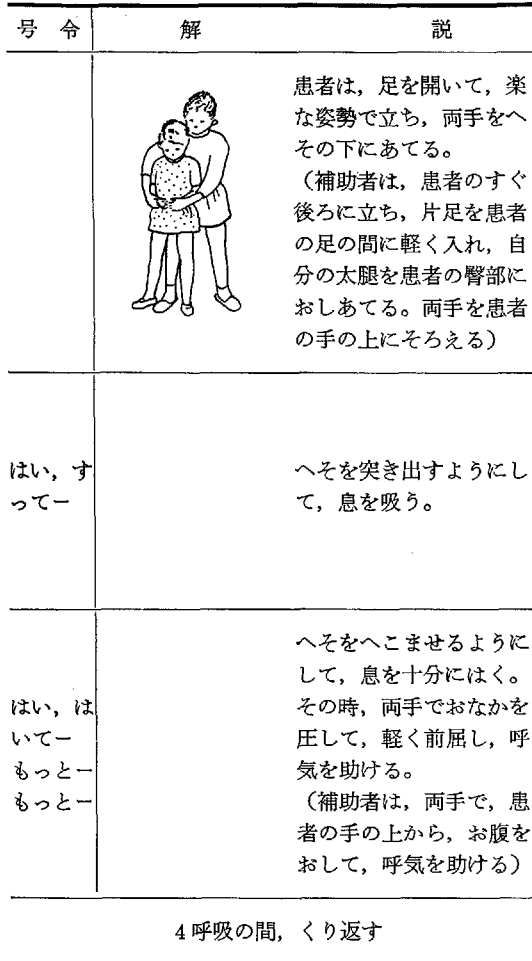 号 令 解 説
患者は，足を開いて，楽
な姿勢で立ち，両手をへ
その下にあてる。
（補助者は，患者のすぐ
後ろに立ち，片足を患者
の足の間に軽く入れ，自
分の太腿を患者の臀部に
おしあてる。両手を患者
の手の上にそろえる）
はい，す
ってー
へそを突き出すようにし
て，息を吸う。
はい，は
いてー
もっとー
もっとー
へそをへこませるように
して，息を十分にはく。
その時，両手でおなかを
圧して，軽く前屈し，呼
気を助ける。
（補助者は，両手で，患
者の手の上から，お腹を
おして，呼気を助ける）
4呼吸の間，くり返す